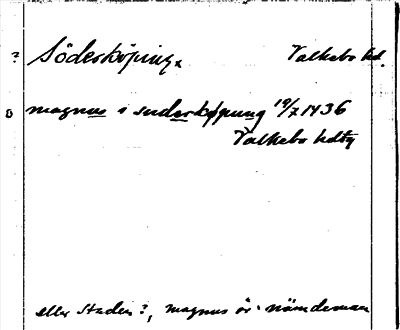 ? Söderköping x Valkebo hd.
o magnus i suderkøpung 19/7 1436
Valkebo hdtg
eller staden?, magnus är nämdeman